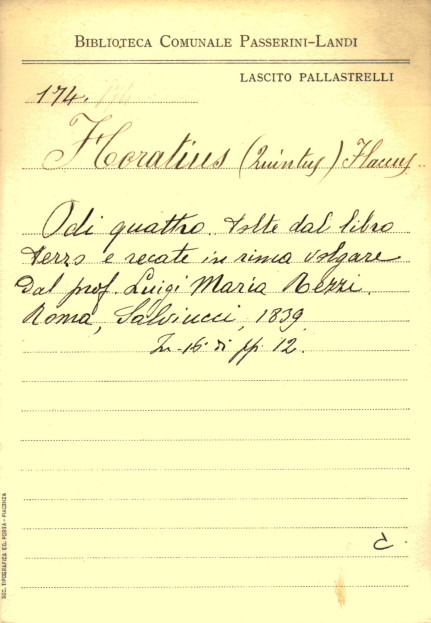 BIBLIOTECA COMUNALE PASSERINI-LANDI
LASCITO PALLASTRELLI
174.
Horatius (Quintus) Flaccus
Odi quattro tolte dal libro
terzo e recate in rima volgare
dal prof. Luigi Maria Rezzi.
Roma, Salviucci, 1839
In-16° di pp. 12.
C.
SOC. TIPOGRAFICA ED. PORTA - PIACENZA